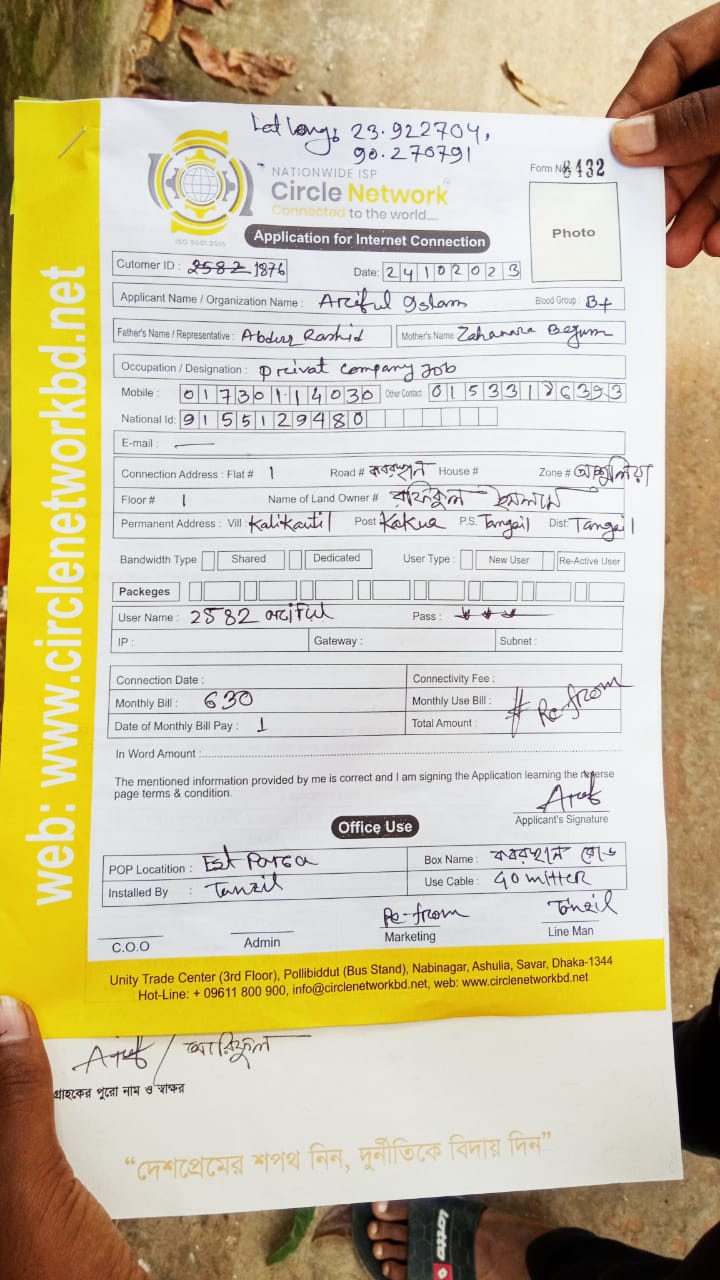 Lat Long: 23.922704,
90.270791
NATIONWIDE ISP
Circle Network
Connected to the world.....
ISO 9001:2015
Form No 8432
Application for Internet Connection
Photo
Cutomer ID : 2582 1876
Date: 24102023
Applicant Name / Organization Name : Ariful Islam
Blood Group : B+
Father's Name / Representative : Abdur Rashid
Mother's Name Zahanara Begum
Occupation / Designation : privat company Job
Mobile : 01730114030 Other Contact 01533186393
National Id: 9155129480
E-mail :
Connection Address : Flat # 1 Road # কবরস্থান House # Zone # আশুলিয়া
Floor # 1 Name of Land Owner # রফিকুল ইসলাম
Permanent Address : Vill : Kalikautil Post Kakua P.S. Tangail Dist: Tangail
Bandwidth Type Shared Dedicated User Type : New User Re-Active User
Packeges
User Name : 2582 ariful Pass : * * *
IP : Gateway : Subnet :
Connection Date : Connectivity Fee :
Monthly Bill : 630 Monthly Use Bill :
# Re-from
Date of Monthly Bill Pay : 1 Total Amount :
In Word Amount :
The mentioned information provided by me is correct and I am signing the Application learning the reverse
page terms & condition.
Aref
Applicant's Signature
Office Use
POP Locatition : Est Parsa Box Name : কবরস্থান রোড
Installed By : Tanzil Use Cable : 40 mitter
Re-from Tanzil
C.O.O Admin Marketing Line Man
Unity Trade Center (3rd Floor), Pollibiddut (Bus Stand), Nabinagar, Ashulia, Savar, Dhaka-1344
Hot-Line: + 09611 800 900, info@circlenetworkbd.net, web: www.circlenetworkbd.net
web: www.circlenetworkbd.net
Aref / আরিফুল
গ্রাহকের পুরো নাম ও স্বাক্ষর
“দেশপ্রেমের শপথ নিন, দুর্নীতিকে বিদায় দিন”
lotto